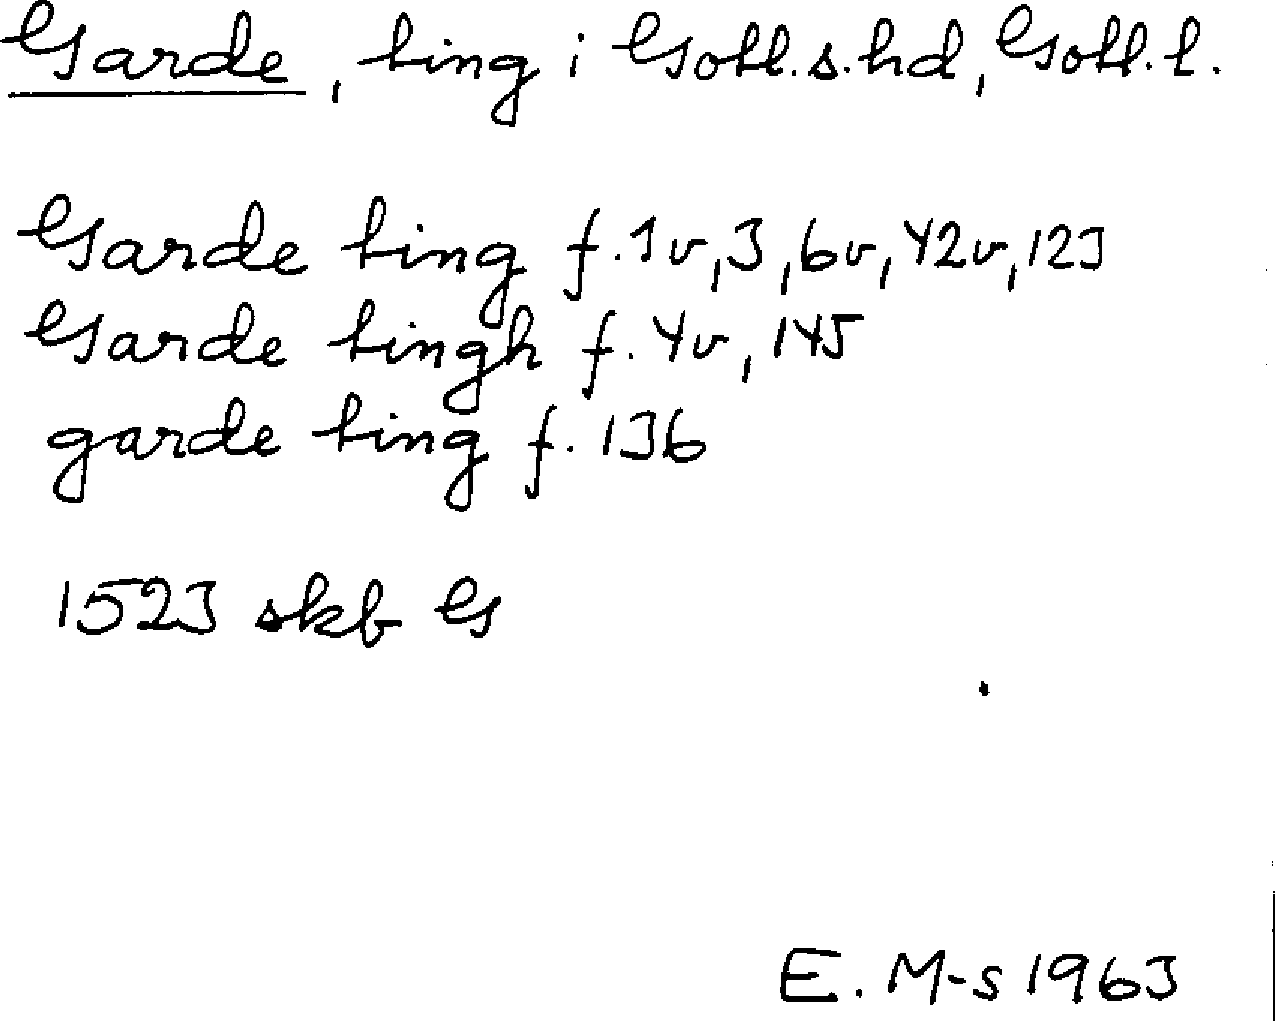 Garde, ting i Gotl.s.hd, Gotl.l.
Garde ting f.1v,3,6v,42v,123
Garde tingh f.4v,145
garde ting f.136
1523 skb G
E.M-s 1963